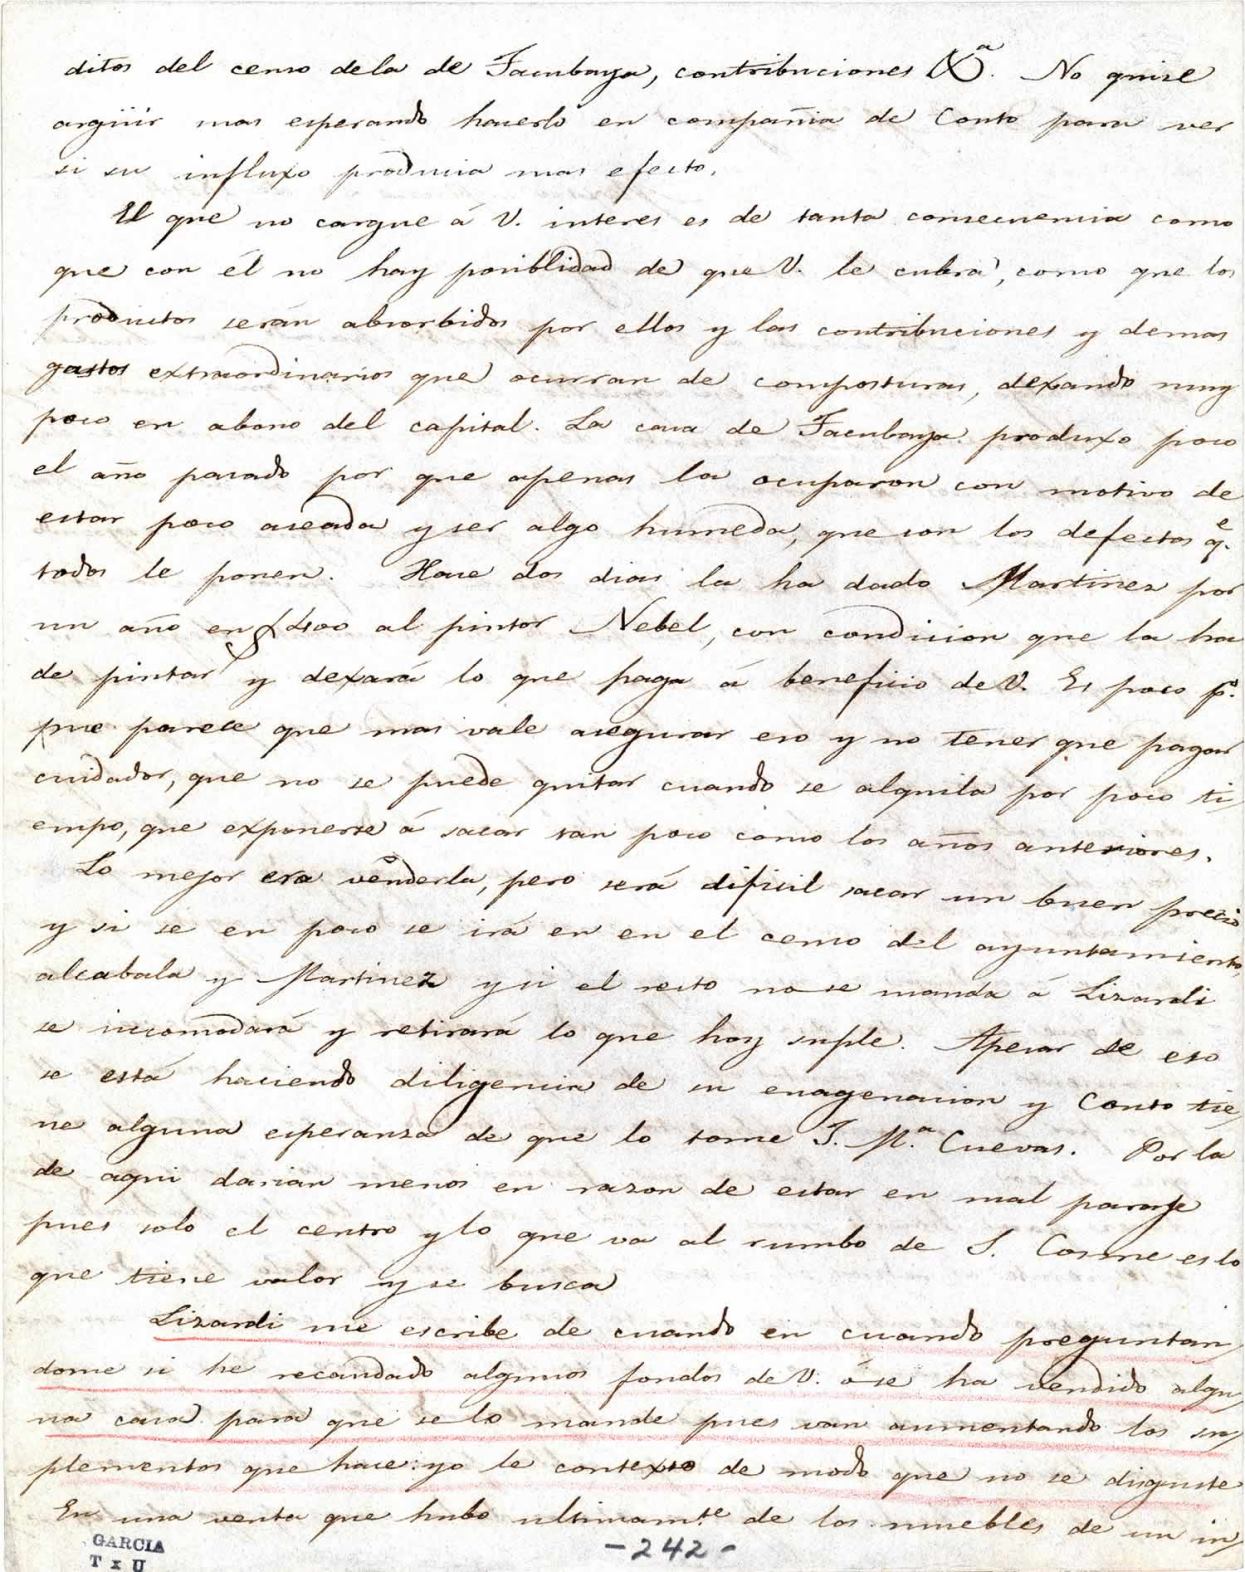 ditos del censo de la de Tacubaya, contribuciones &a. No quise
argüir mas esperando hacerlo en compañia de Couto para ver
si su influxo producia mas efecto.
El que no cargue á V. interes es de tanta consecuencia como
que con él no hay posiblidad de que V. le cubra, como que los
productos serán absorbidos por ellos y las contribuciones y demas
gastos extraordinarios que ocurran de composturas, dexando muy
poco en abono del capital. La casa de Tacubaya produxo poco
el año pasado por que apenas la ocuparon con motivo de
estar poco aseada y ser algo humeda, que son los defectos qe.
todos le ponen. Hace dos dias la ha dado Martinez por
un año en $400 al pintor Nebel, con condicion que la ha
de pintar y dexará lo que paga á beneficio de V. Es poco po.
me parece que mas vale asegurar eso y no tener que pagar
cuidador, que no se puede quitar cuando se alquila por poco ti
empo, que exponerse á sacar tan poco como los años anteriores.
Lo mejor era venderla, pero será dificil sacar un buen precio
y si se en poco se irá en en el censo del ayuntamiento,
alcabala y Martinez y si el resto no se manda á Lizardi
se incomodará y retirará lo que hoy suple. Apesar de eso
se está haciendo diligencia de su enagenacion y Couto tie
ne alguna esperanza de que lo tome J. Ma. Cuevas. Por la
de aqui darian menos en razon de estar en mal parage
pues solo el centro y lo que va al rumbo de S. Cosme es lo
que tiene valor y se busca
Lizardi me escribe de cuando en cuando preguntan
dome si he recaudado algunos fondos de V. ó se ha vendido algu
na casa para que se lo mande pues van aumentando los su
plementos que hace: yo le contexto de modo que no se disguste
En una venta que hubo ultimamte. de los muebles de un in
GARCIA
T x U
-242-